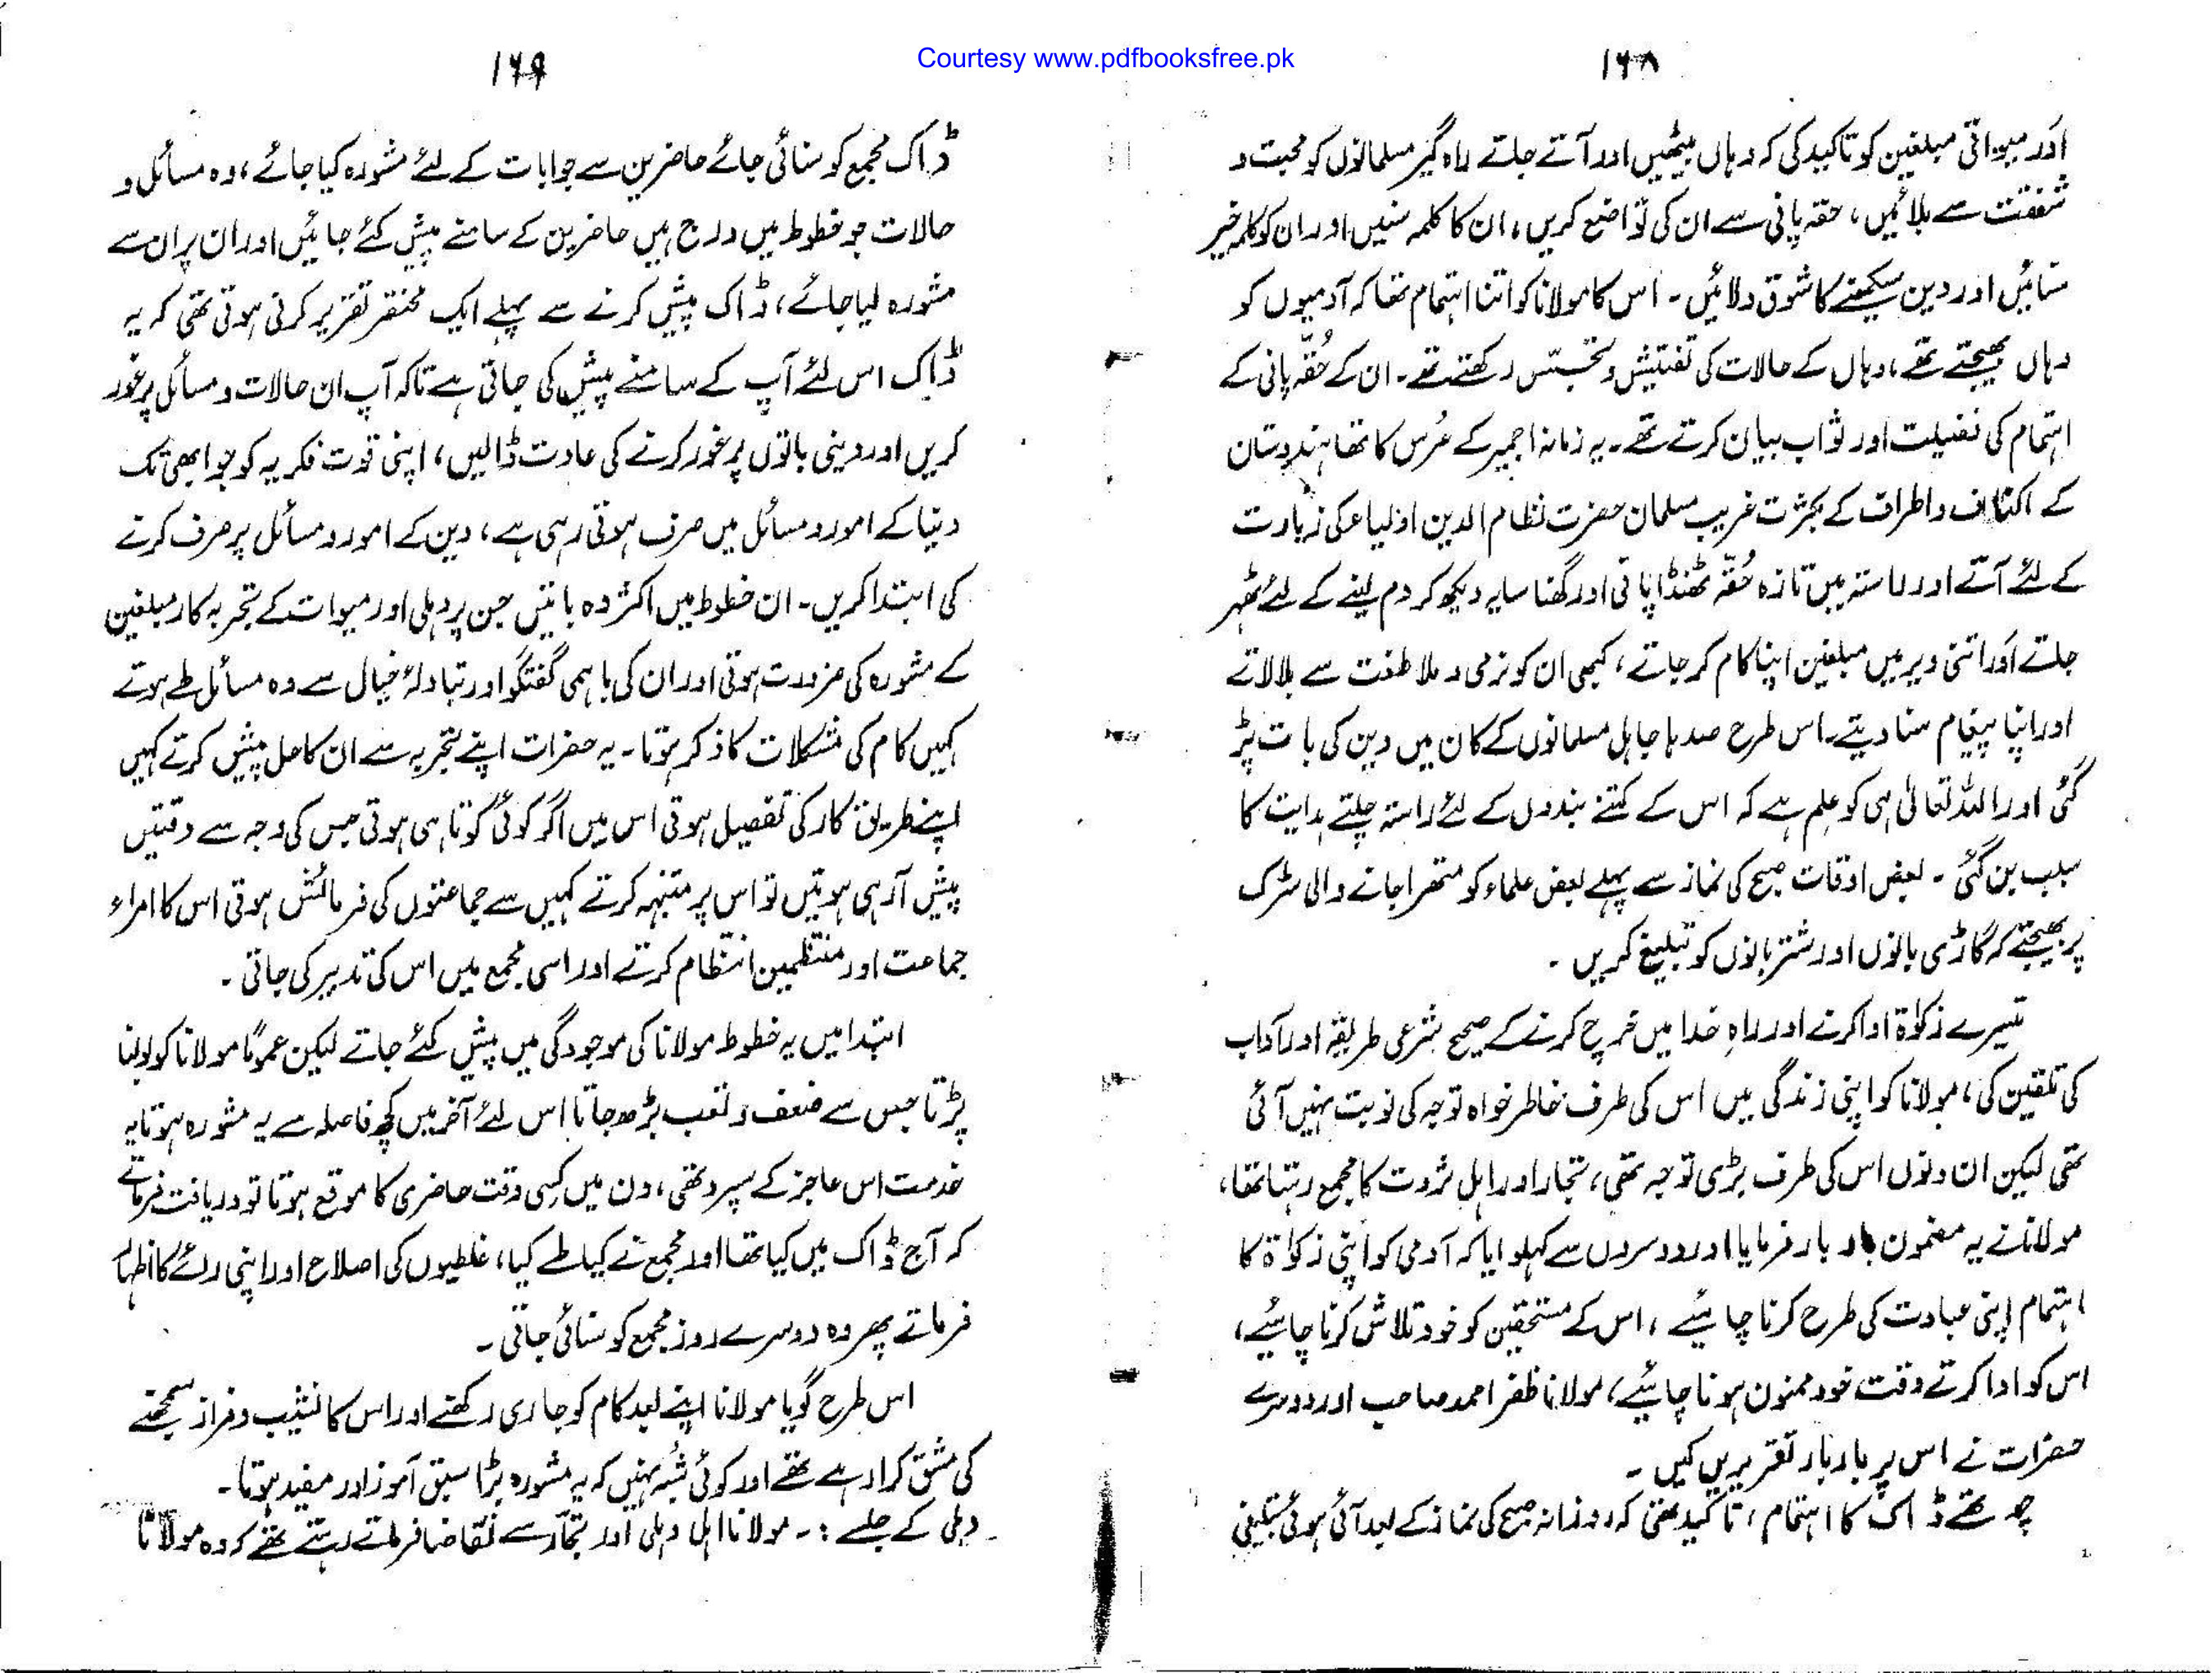 Courtesy www.pdfbooksfree.pk
۱۶۸
اور میواتی مبلغین کو تاکید کی کہ وہاں بیٹھیں اور آتے جاتے راہ گیر مسلمانوں کو محبت و
شفقت سے بلائیں، حقہ پانی سے ان کی تواضع کریں، ان کا کلمہ سنیں اور ان کو کلمہ خیر
سنائیں اور دین سیکھنے کا شوق دلائیں۔ اس کا مولانا کو اتنا اہتمام تھا کہ آدمیوں کو
وہاں بھیجتے تھے، وہاں کے حالات کی تفتیش و تجسّس رکھتے تھے۔ ان کے حُقّہ پانی کے
اہتمام کی فضیلت اور ثواب بیان کرتے تھے۔ یہ زمانہ اجمیر کے عُرس کا تھا ہندوستان
کے اکناف و اطراف کے بکثرت غریب مسلمان حضرت نظام الدین اولیاء کی زیارت
کے لئے آتے اور راستہ میں تازہ حُقّہ ٹھنڈا پانی اور گھنا سایہ دیکھ کر دم لینے کے لئے ٹھہر
جاتے اور اتنی دیر میں مبلغین اپنا کام کر جاتے، کبھی ان کو نرمی و ملاطفت سے بلا لاتے
اور اپنا پیغام سنا دیتے۔ اس طرح صدہا جاہل مسلمانوں کے کان میں دین کی بات پڑ
گئی اور اللہ تعالیٰ ہی کو علم ہے کہ اس کے کتنے بندوں کے لئے راستہ چلتے ہدایت کا
سبب بن گئی۔ بعض اوقات صبح کی نماز سے پہلے بعض علماء کو متھرا جانے والی سڑک
پر بھیجتے کہ گاڑی بانوں اور شتربانوں کو تبلیغ کریں۔
تیسرے زکوٰۃ ادا کرنے اور راہِ خدا میں خرچ کرنے کے صحیح شرعی طریقہ اور آداب
کی تلقین کی، مولانا کو اپنی زندگی میں اس کی طرف خاطر خواہ توجہ کی نوبت نہیں آئی
تھی لیکن ان دنوں اس کی طرف بڑی توجہ تھی، تجار اور اہل ثروت کا مجمع رہتا تھا،
مولانا نے یہ مضمون بار بار فرمایا اور دوسروں سے کہلوایا کہ آدمی کو اپنی زکوٰۃ کا
اہتمام اپنی عبادت کی طرح کرنا چاہئیے، اس کے مستحقین کو خود تلاش کرنا چاہئیے،
اس کو ادا کرتے وقت خود ممنون ہونا چاہئیے، مولانا ظفر احمد صاحب اور دوسرے
حضرات نے اس پر بار بار تقریریں کیں۔
چوتھے ڈاک کا اہتمام، تاکید تھی کہ روزانہ صبح کی نماز کے بعد آئی ہوئی تبلیغی
۱۶۹
ڈاک مجمع کو سنائی جائے حاضرین سے جوابات کے لئے مشورہ کیا جائے، وہ مسائل و
حالات جو خطوط میں درج ہیں حاضرین کے سامنے پیش کئے جائیں اور ان پر ان سے
مشورہ لیا جائے، ڈاک پیش کرنے سے پہلے ایک مختصر تقریر کرنی ہوتی تھی کہ یہ
ڈاک اس لئے آپ کے سامنے پیش کی جاتی ہے تاکہ آپ ان حالات و مسائل پر غور
کریں اور دینی باتوں پر غور کرنے کی عادت ڈالیں، اپنی قوت فکریہ کو جو ابھی تک
دنیا کے امور و مسائل میں صرف ہوتی رہی ہے، دین کے امور و مسائل پر صرف کرنے
کی ابتدا کریں۔ ان خطوط میں اکثر وہ باتیں جن پر دہلی اور میوات کے تجربہ کار مبلغین
کے مشورہ کی ضرورت ہوتی اور ان کی باہمی گفتگو اور تبادلۂ خیال سے وہ مسائل طے ہوتے
کہیں کام کی مشکلات کا ذکر ہوتا۔ یہ حضرات اپنے تجربہ سے ان کا حل پیش کرتے کہیں
اپنے طریق کار کی تفصیل ہوتی اس میں اگر کوئی کوتاہی ہوتی جس کی وجہ سے دقتیں
پیش آرہی ہوتیں تو اس پر متنبہ کرتے کہیں سے جماعتوں کی فرمائش ہوتی اس کا امراء
جماعت اور منتظمین انتظام کرتے اور اسی مجمع میں اس کی تدبیر کی جاتی۔
ابتدا میں یہ خطوط مولانا کی موجودگی میں پیش کئے جاتے لیکن عموماً مولانا کو بولنا
پڑتا جس سے ضعف و تعب بڑھ جاتا اس لئے آخر میں کچھ فاصلہ سے یہ مشورہ ہوتا یہ
خدمت اس عاجز کے سپرد تھی، دن میں کسی وقت حاضری کا موقع ہوتا تو دریافت فرماتے
کہ آج ڈاک میں کیا تھا اور مجمع نے کیا طے کیا، غلطیوں کی اصلاح اور اپنی رائے کا اظہار
فرماتے پھر وہ دوسرے روز مجمع کو سنائی جاتی۔
اس طرح گویا مولانا اپنے بعد کام کو جاری رکھنے اور اس کا نشیب و فراز سمجھنے
کی مشق کرا رہے تھے اور کوئی شبہ نہیں کہ یہ مشورہ بڑا سبق آموز اور مفید ہوتا۔
دہلی کے جلسے :۔ مولانا اہل دہلی اور تجار سے تقاضا فرماتے رہتے تھے کہ وہ مولانا